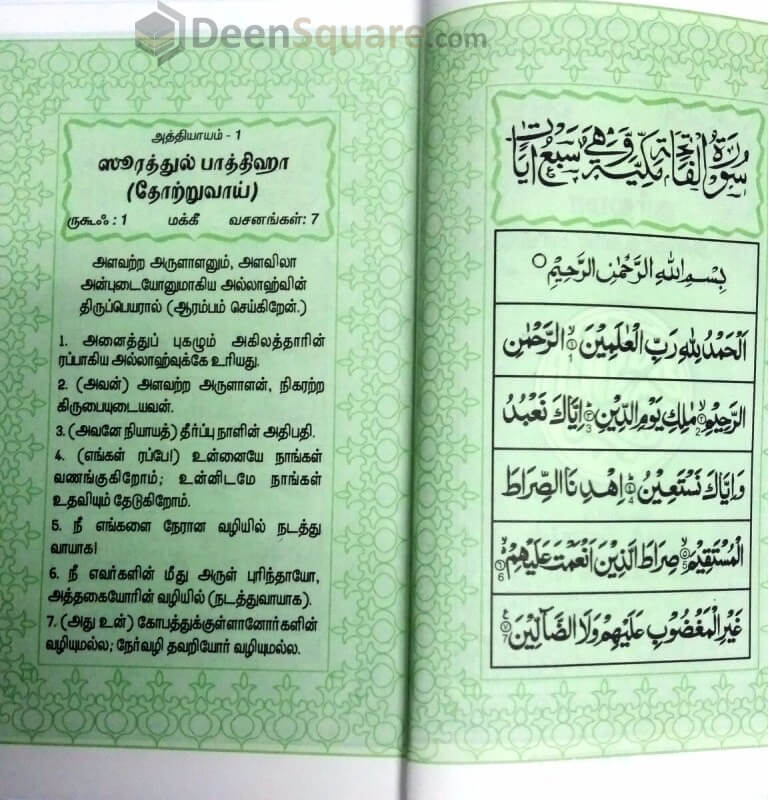 DeenSquare.com
அத்தியாயம் - 1
ஸூரத்துல் பாத்திஹா
(தோற்றுவாய்)
ருகூஃ : 1 மக்கீ வசனங்கள்: 7
அளவற்ற அருளாளனும், அளவிலா
அன்புடையோனுமாகிய அல்லாஹ்வின்
திருப்பெயரால் (ஆரம்பம் செய்கிறேன்.)
1. அனைத்துப் புகழும் அகிலத்தாரின்
ரப்பாகிய அல்லாஹ்வுக்கே உரியது.
2. (அவன்) அளவற்ற அருளாளன், நிகரற்ற
கிருபையுடையவன்.
3. (அவனே நியாயத்) தீர்ப்பு நாளின் அதிபதி.
4. (எங்கள் ரப்பே!) உன்னையே நாங்கள்
வணங்குகிறோம்; உன்னிடமே நாங்கள்
உதவியும் தேடுகிறோம்.
5. நீ எங்களை நேரான வழியில் நடத்து
வாயாக!
6. நீ எவர்களின் மீது அருள் புரிந்தாயோ,
அத்தகையோரின் வழியில் (நடத்துவாயாக).
7. (அது உன்) கோபத்துக்குள்ளானோர்களின்
வழியுமல்ல; நேர்வழி தவறியோர் வழியுமல்ல.
سُوْرَةُ الْفَاتِحَةِ مَكِّيَّةٌ وَّهِيَ سَبْعُ اٰيَاتٍ
بِسْمِ اللهِ الرَّحْمٰنِ الرَّحِيْمِ
اَلْحَمْدُ لِلّٰهِ رَبِّ الْعٰلَمِيْنَ ۙ﴿١﴾ 1 الرَّحْمٰنِ
الرَّحِيْمِ ۙ﴿٢﴾ 2 مٰلِكِ يَوْمِ الدِّيْنِ ؕ﴿٣﴾ 3 اِيَّاكَ نَعْبُدُ
وَاِيَّاكَ نَسْتَعِيْنُ ؕ﴿٤﴾ 4 اِهْدِنَا الصِّرَاطَ
الْمُسْتَقِيْمَ ۙ﴿٥﴾ 5 صِرَاطَ الَّذِيْنَ اَنْعَمْتَ عَلَيْهِمْ ۙ﴿٦﴾ 6
غَيْرِ الْمَغْضُوْبِ عَلَيْهِمْ وَلَا الضَّآلِّيْنَ ﴿٧﴾ 7